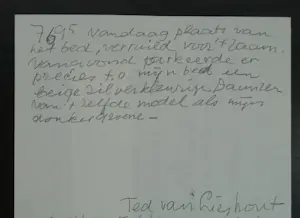 7/9/95 Vandaag plaats van
het bed, verruild voor 't raam.
Vanavond parkeerde er
precies t.o. mijn bed een
beige zilverkleurige Daimler
van 't zelfde model als mijn
donkergroene –
Ted van Lieshout